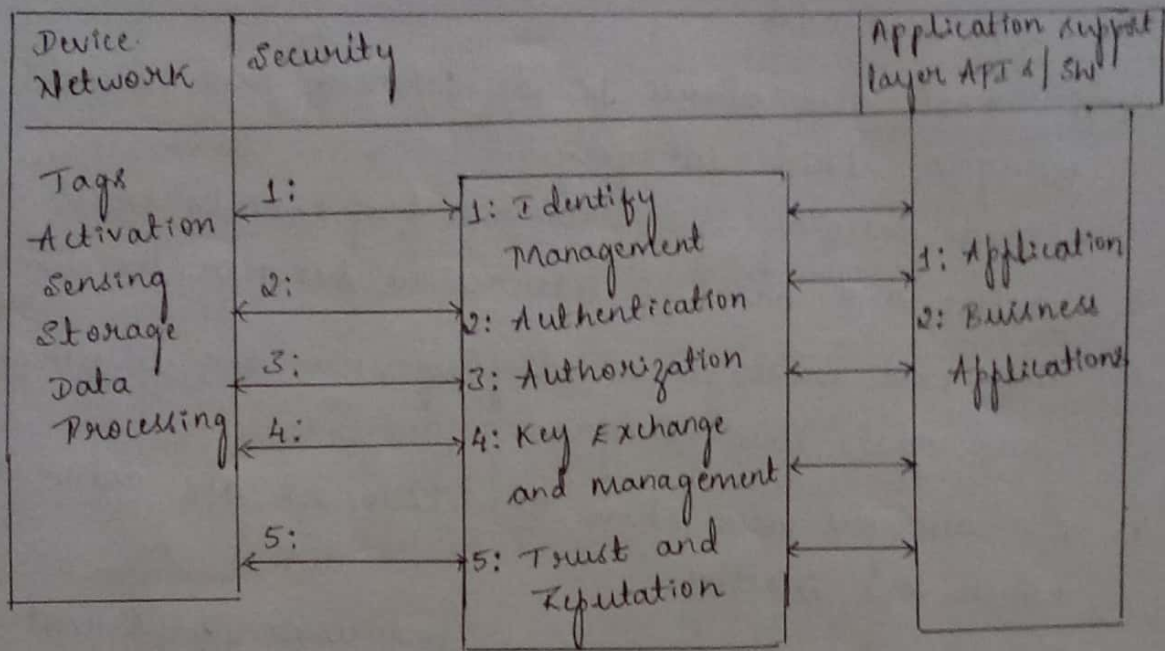 Device
Network
Security
Application support
layer API &/ SW
Tags
Activation
Sensing
Storage
Data
Processing
1:
2:
3:
4:
5:
1: Identify
Management
2: Authentication
3: Authorization
4: Key Exchange
and management
5: Trust and
Reputation
1: Application
2: Buisness
Applications